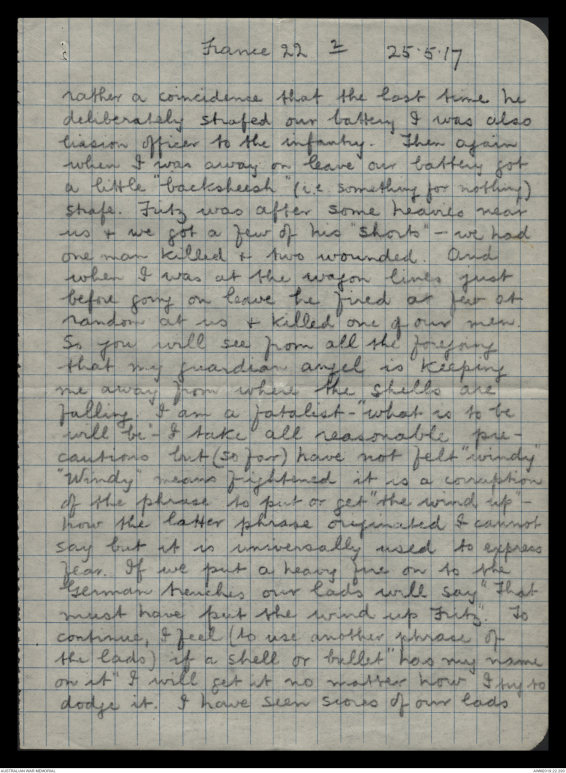 France 22 2 25.5.17
rather a coincidence that the last time he
deliberately strafed our battery I was also
liaison officer to the infantry. Then again
when I was away on leave our battery got
a little "backsheesh" (i.e. something for nothing)
strafe. Fritz was after some heavies near
us & we got a few of his "shorts" - we had
one man killed & two wounded. And
when I was at the wagon lines just
before going on leave he fired a few at
random at us & killed one of our men.
So you will see from all the foregoing
that my guardian angel is keeping
me away from where the shells are
falling. I am a fatalist - "what is to be
will be" - I take all reasonable pre-
cautions but (so far) have not felt "windy"
"Windy" means frightened it is a corruption
of the phrase to put or get "the wind up" -
how the latter phrase originated I cannot
say but it is universally used to express
fear. If we put a heavy fire on to the
German trenches our lads will say "That
must have put the wind up Fritz". To
continue, I feel (to use another phrase of
the lads) if a shell or bullet "has my name
on it" I will get it no matter how I try to
dodge it. I have seen scores of our lads
AUSTRALIAN WAR MEMORIAL